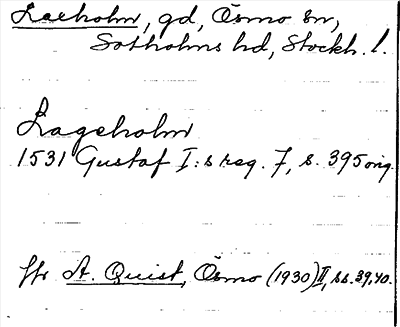 Leeholm, gd, Ösmo sn,
Sotholms hd, Stockh. l.
Lageholm
1531 Gustaf I:s reg. 7, s. 395 orig.
Jfr A. Quist, Ösmo (1930) II, ss. 39, 40.